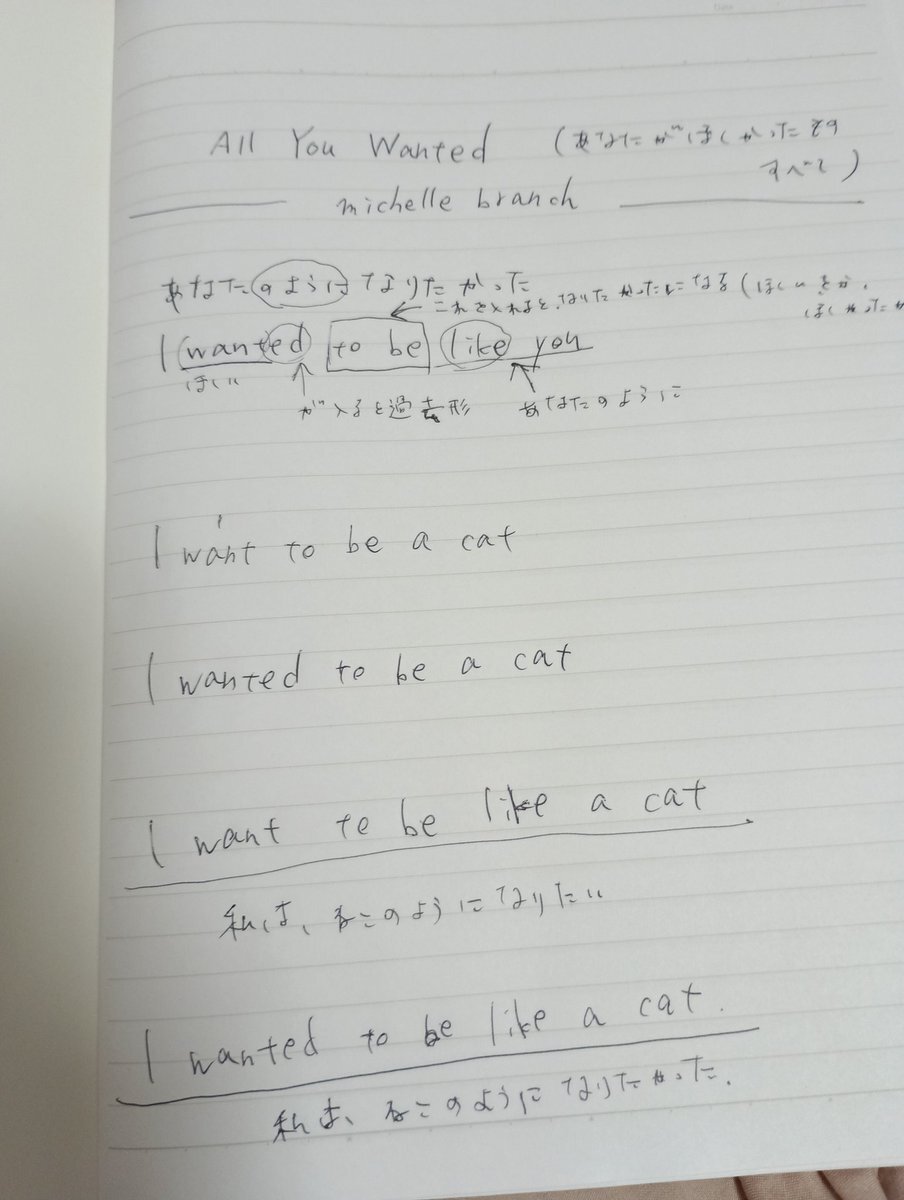 All You Wanted (あなたがほしかったその
すべて)
michelle branch
あなたのようになりたかった
← これを入れると、なりたかったになる (ほしいとか、
ほしかったか
I wanted to be like you
ほしい
が入ると過去形 あなたのように
I want to be a cat
I wanted to be a cat
I want to be like a cat
私は、ねこのようになりたい
I wanted to be like a cat.
私は、ねこのようになりたかった.